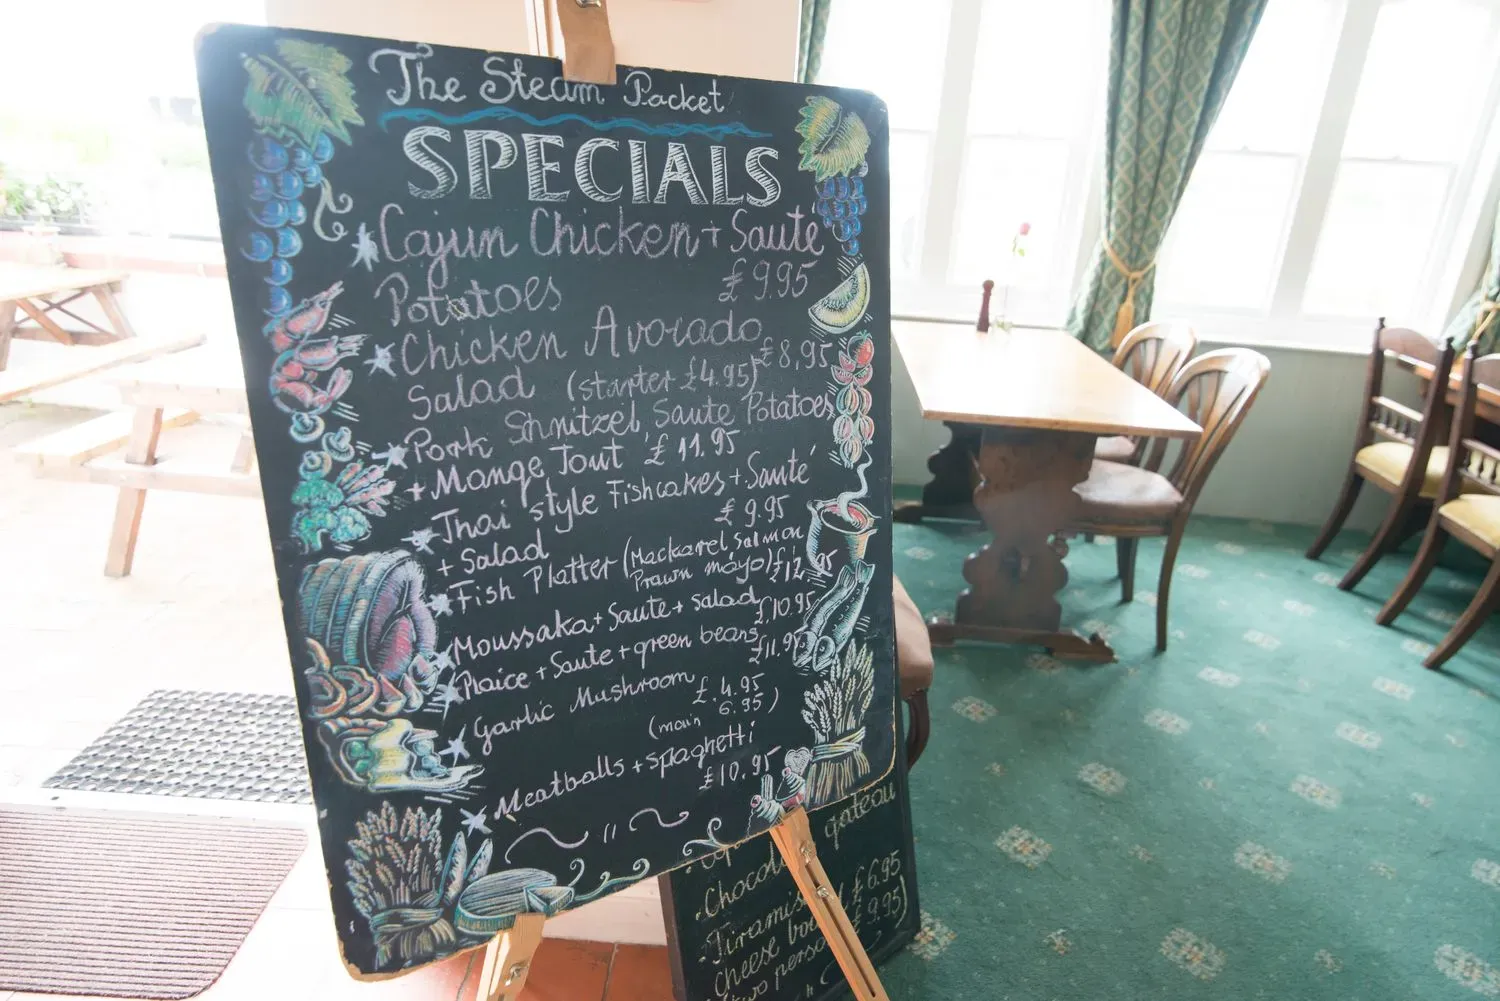 The Steam Packet
SPECIALS
Cajun Chicken + Sauté
Potatoes £9.95
Chicken Avocado
Salad (starter £4.95) £8,95
Pork Shnitzel Saute Potatoes
+ Mange Tout £11.95
Thai style Fishcakes + Sauté
+ Salad £9.95
Fish Platter (Mackarel Salmon
Prawn mayo) £12.95
Moussaka + Saute + salad £10.95
Plaice + Saute + green beans £11.95
Garlic Mushroom £.4.95
(main 6.95)
Meatballs + spaghetti
£10.95
gateau
Tiramis
£6.95
Cheese
two perso
£9.95)